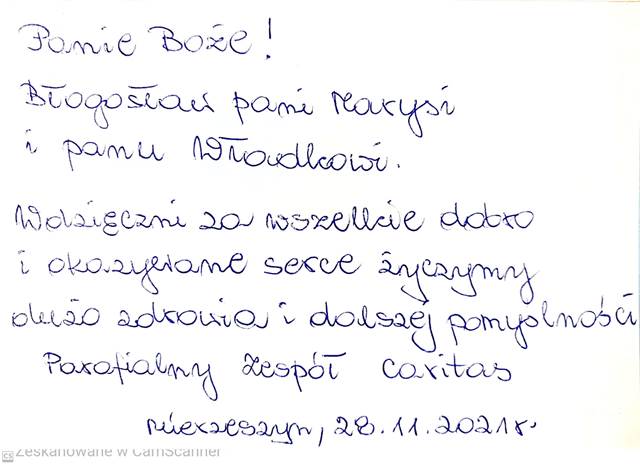 Panie Boże!
Błogosław pani Marysi
i panu Władkowi.
Wdzięczni za wszelkie dobro
i okazywane serce życzymy
dużo zdrowia i dalszej pomyślności
Parafialny Zespół Caritas
Mierzeszyn, 28.11.2021r.
CS Zeskanowane w CamScanner